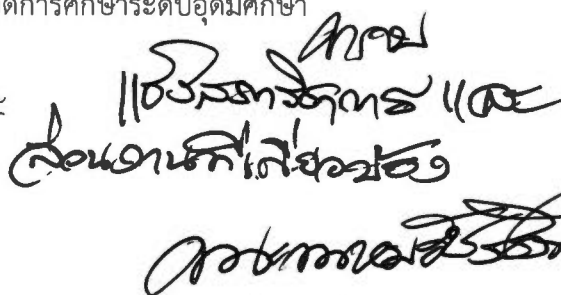 ดการศึกษาระดับอุดมศึกษา
ทราบ
แจ้งสภาวิชาการ และ
ส่วนงานที่เกี่ยวข้อง